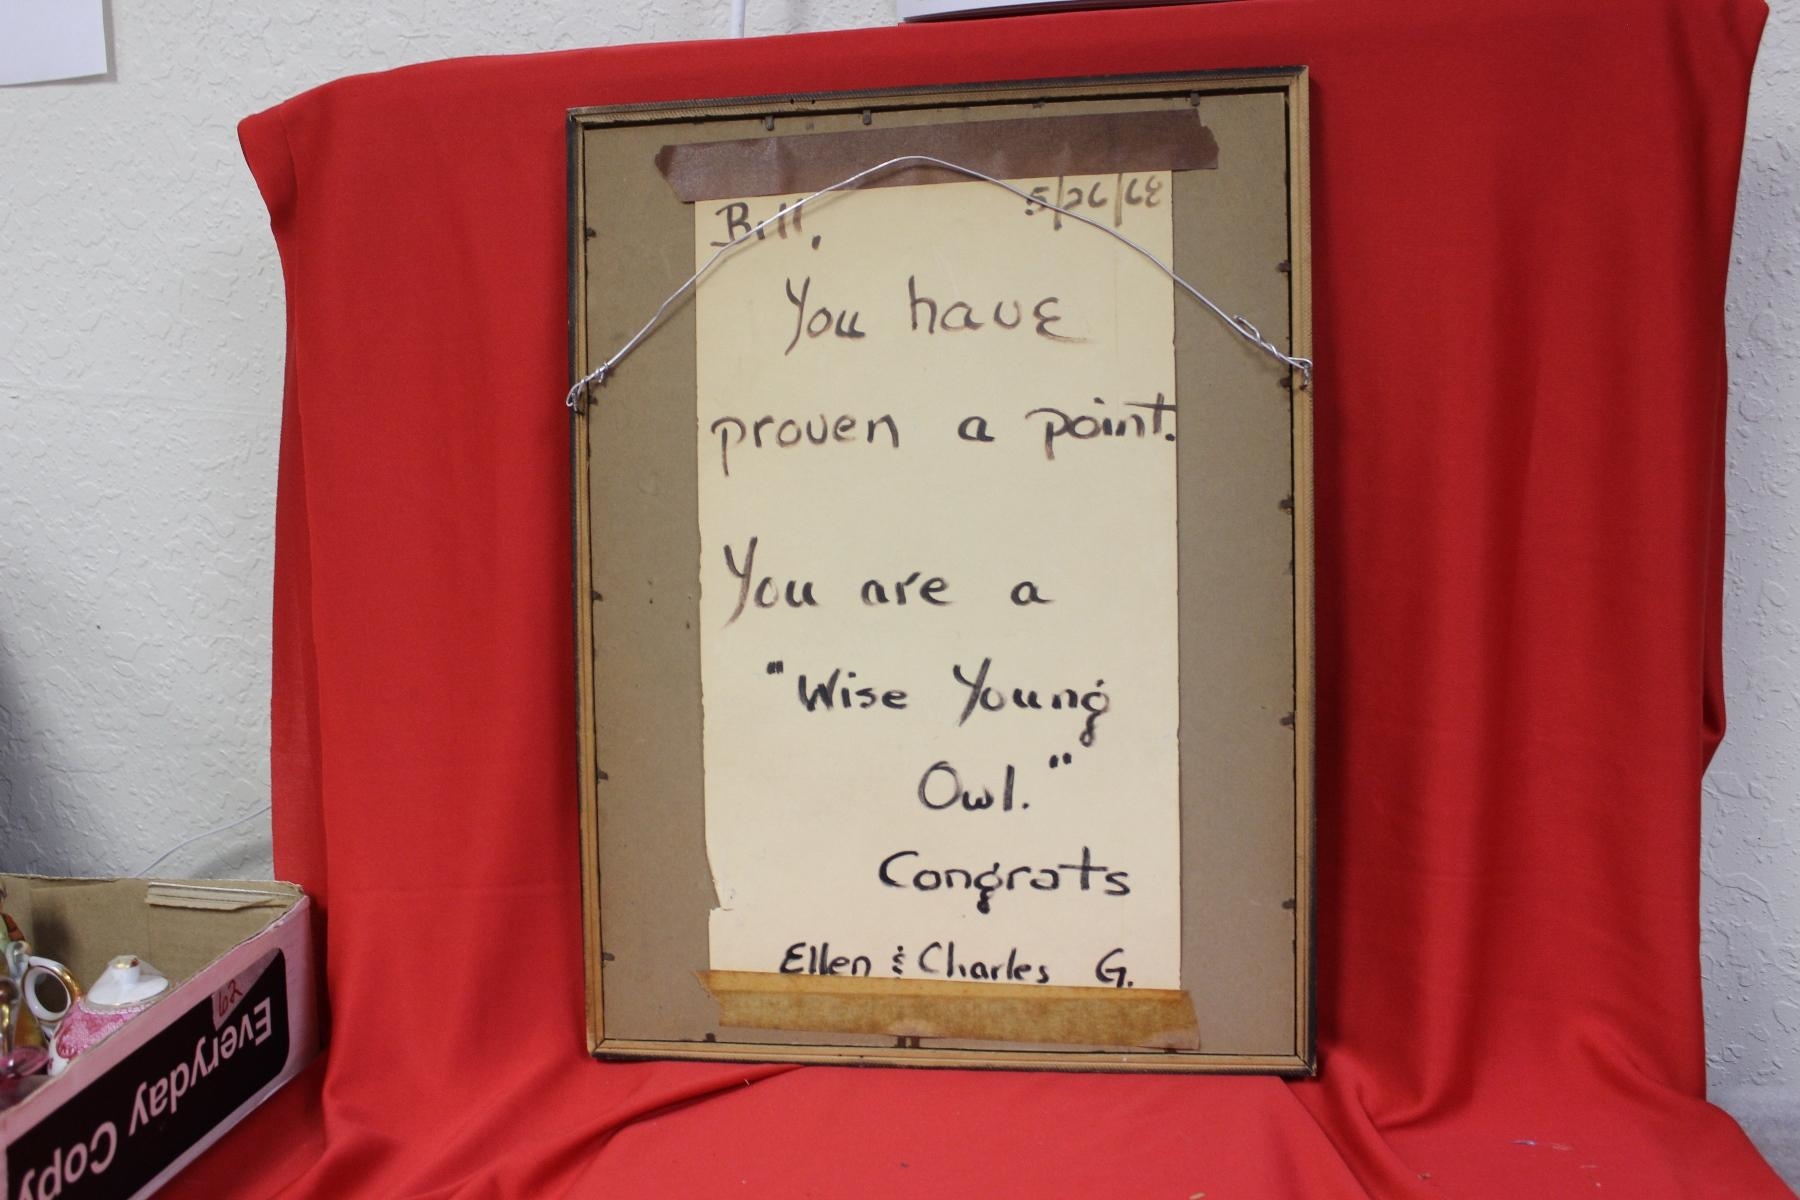 Bill, 5/26/68
You have
proven a point.
You are a
"Wise Young
Owl."
Congrats
Ellen & Charles G.
62
Everyday Copy